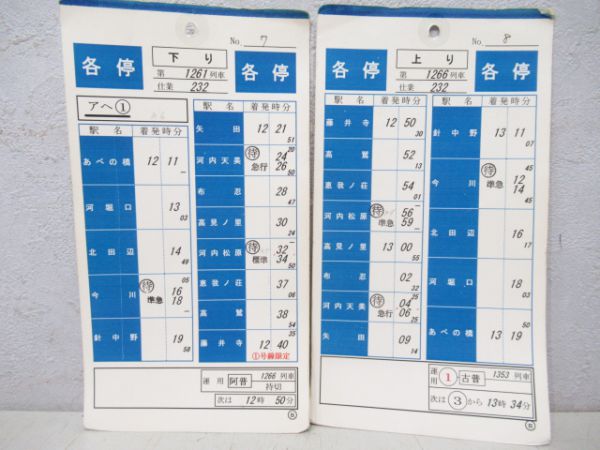 No. 7
各停 下り 各停
第 1261 列車
仕業 232
アヘ①
駅名 着発時分
あべの橋 12 11 —
河堀口 13 03
北田辺 14 49
今川 ㊕ 05
準急 16
18 —
針中野 19 58
駅名 着発時分
矢田 12 21 51
河内天美 待 24 20
急行 26 50
布忍 28 47
高見ノ里 30 24
河内松原 待 32 —
標準 34 50
恵我ノ荘 37 06
高鷲 38 54
藤井寺 12 40 35
①号線限定
運用 阿普 1266 列車
待切
次は 12時 50分
No. 8
各停 上り 各停
第 1266 列車
仕業 232
駅名 着発時分
藤井寺 12 50 30
高鷲 52 13
恵我ノ荘 54 01
河内松原 待 56 —
準急 59 —
高見ノ里 13 00 55
布忍 02 32
河内天美 待 04 25
急行 06 25
矢田 09 14
駅名 着発時分
針中野 13 11 07
今川 待 12 45
準急 14 45
北田辺 16 17
河堀口 18 03
あべの橋 13 19 50
運用 ① 古普 1353 列車
次は ③ から 13時 34分